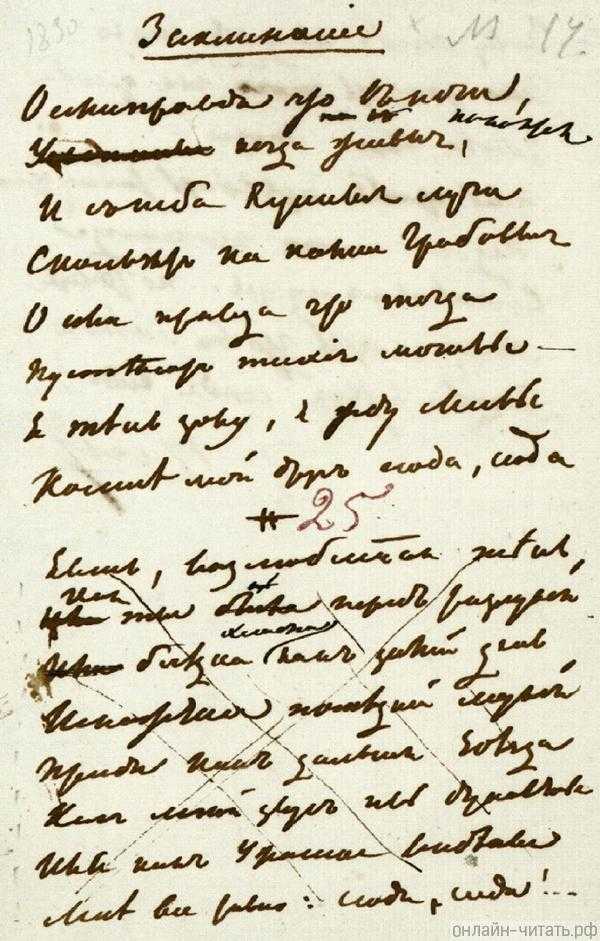 1830
Заклинание
№ 14.
О если правда что въ ночи,
покоятся
когда живые,
И съ неба лунные лучи
Скользятъ на камни гробовые
О если правда что тогда
Пустѣютъ тихія могилы —
Я тѣнь зову, я жду Леилы
Ко мнѣ мой другъ сюда, сюда
25
Явись, возлюбленная тѣнь,
Какъ ты была передъ разлукой
хладна
блѣдна какъ зимній день
Искажена последней мукой
Приди какъ дальная звѣзда
Какъ легкой звукъ иль дуновенье
Иль какъ ужасное видѣнье
Мнѣ все равно: сюда, сюда!..
онлайн-читать.рф